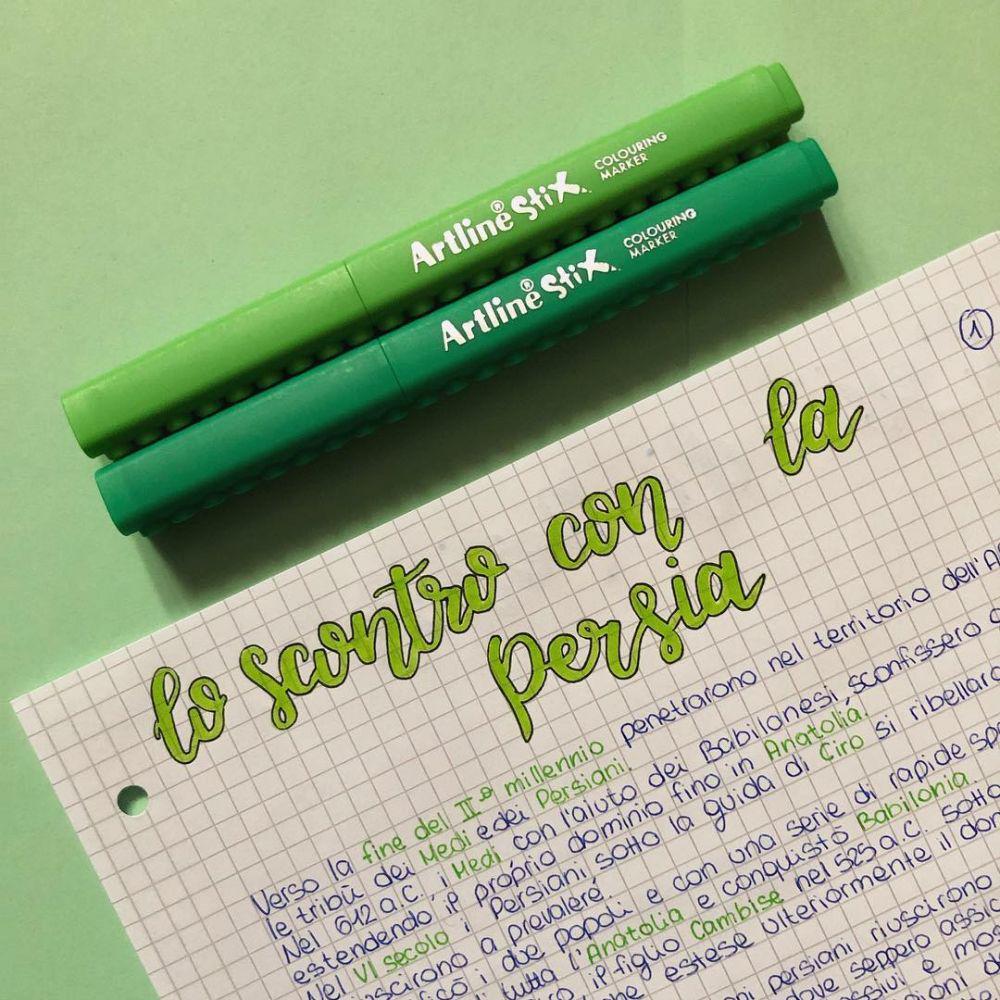 Artline® StiX COLOURING MARKER
Artline® StiX COLOURING MARKER
1
lo scontro con la
persia
Verso la fine del II° millennio penetrarono nel territorio dell'A
le tribù dei Medi e dei Persiani.
Nel 612 a.C., i Medi con l'aiuto dei Babilonesi, sconfissero
estendendo il proprio dominio fino in Anatolia.
Nel VI secolo i Persiani, sotto la guida di Ciro si ribellaro
a prevalere.
i due popoli e con una serie di rapide
tutta l'Anatolia e conquistò Babilonia.
il figlio Cambise nel 525 a.C. sotto
estese ulteriormente il dom
persiani riuscirono
dove seppero